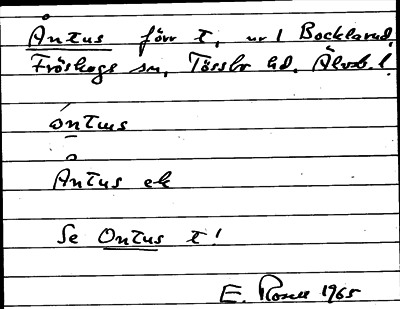 Åntus förr t. nr 1 Bocklarud,
Fröskogs sn, Tössbo hd. Älvsb. l.
òntus
Åntus ek
Se Ontus t!
E. Rosell 1965